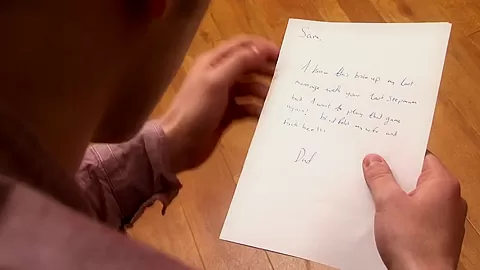 Sam.
I know this broke up my last
marriage with your last stepmum
but I want to play that game
again! my wife and
Dad